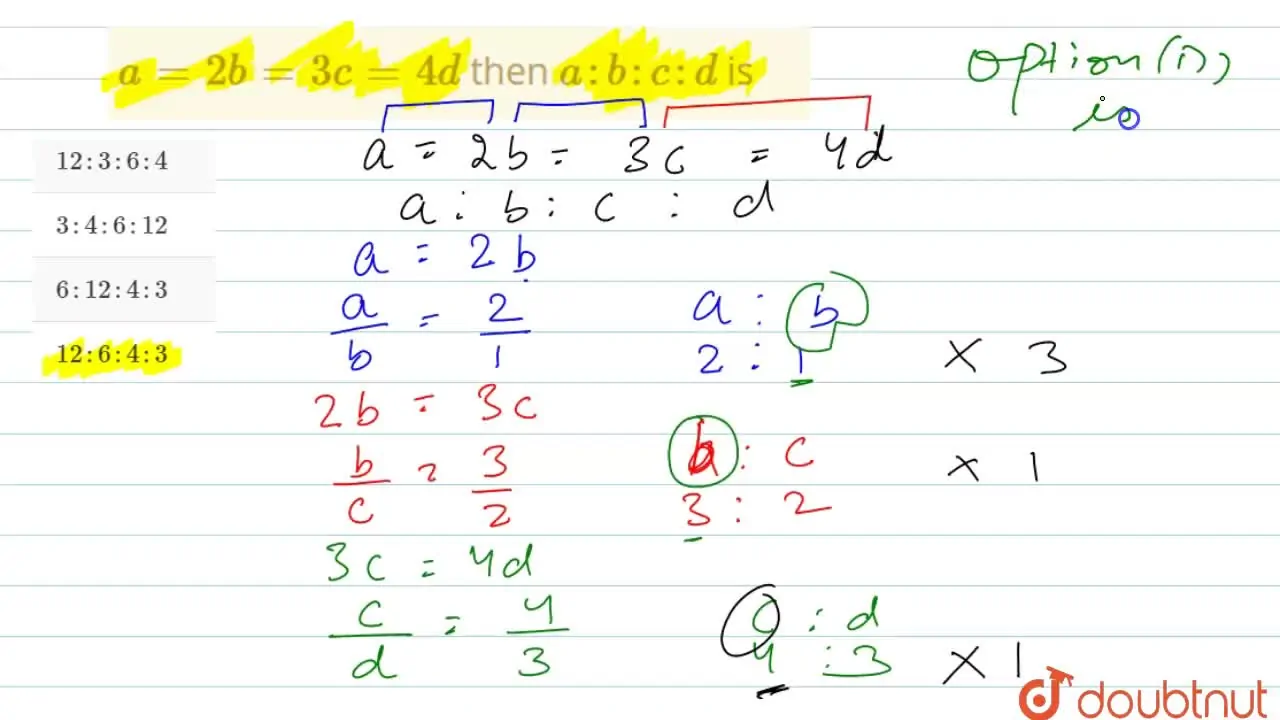 a = 2b = 3c = 4d then a : b : c : d is
option (D)
is
12 : 3 : 6 : 4
3 : 4 : 6 : 12
6 : 12 : 4 : 3
12 : 6 : 4 : 3
a = 2b = 3c = 4d
a : b : c : d
a = 2b
a/b = 2/1
a : b
2 : 1 × 3
2b = 3c
b/c = 3/2
b : c × 1
3 : 2
3c = 4d
c/d = 4/3
c : d
4 : 3 × 1
doubtnut